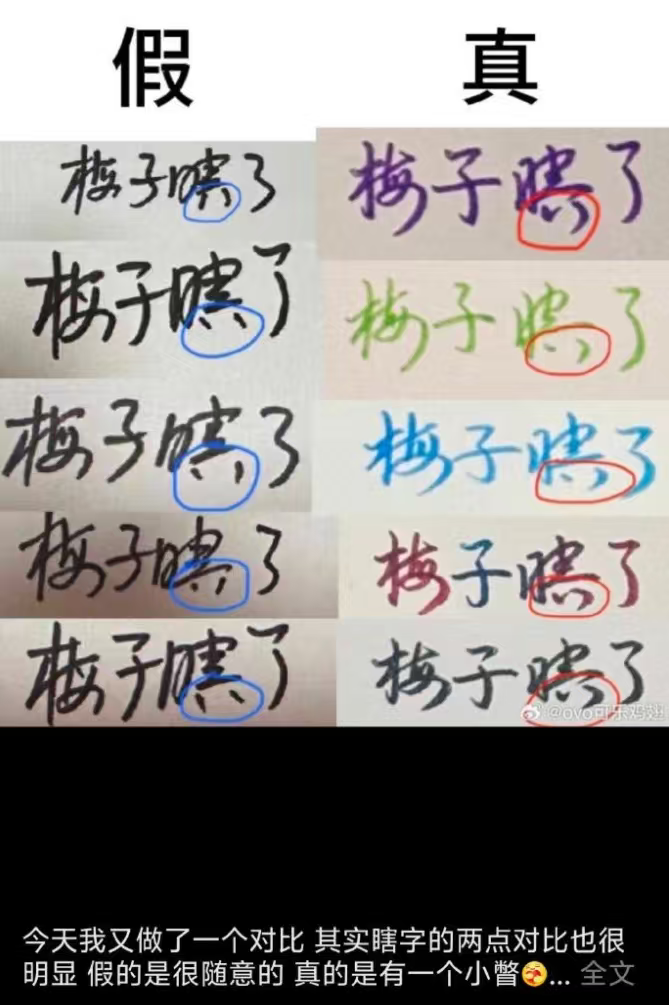 假 真
梅子瞎了 梅子瞎了
梅子瞎了 梅子瞎了
梅子瞎了 梅子瞎了
梅子瞎了 梅子瞎了
梅子瞎了 梅子瞎了
@ovo可乐鸡翅
今天我又做了一个对比 其实瞎字的两点对比也很
明显 假的是很随意的 真的是有一个小瞥... 全文